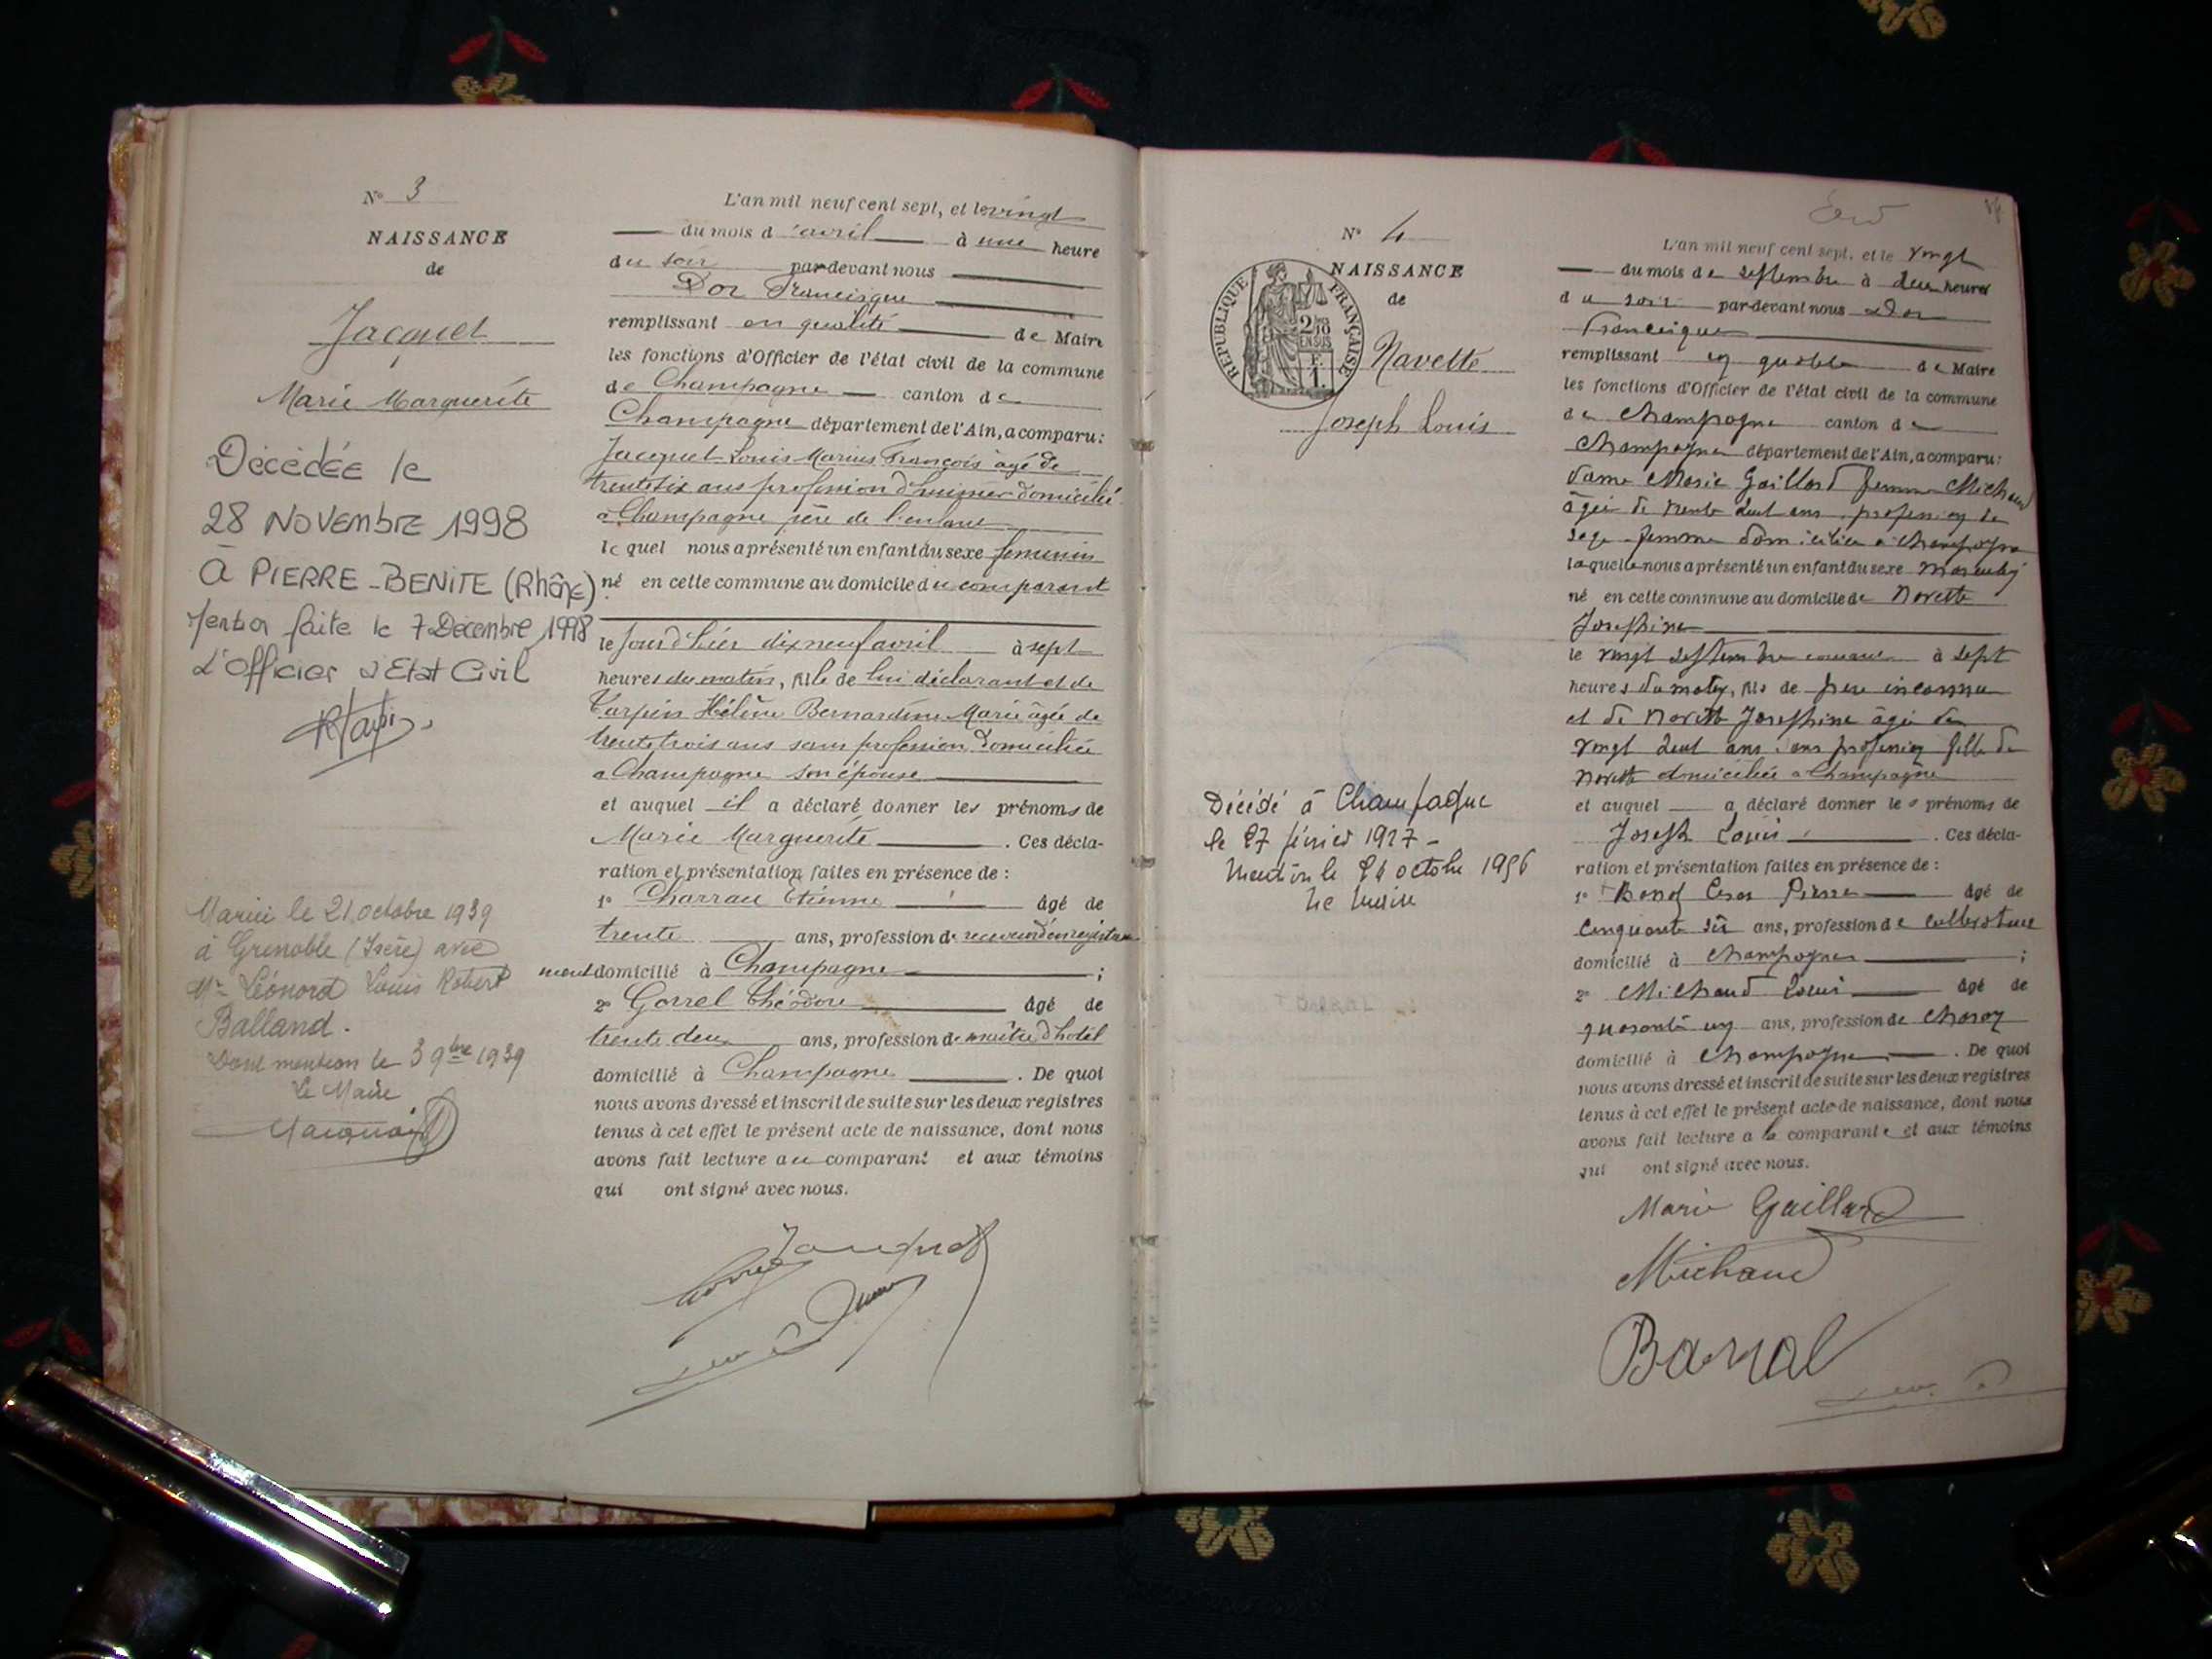 N° 3
NAISSANCE
de
Jacquet
Marie Marguerite
Décédée le
28 Novembre 1998
à PIERRE-BENITE (Rhône)
faite le 7 Décembre 1998
L'officier d'Etat Civil
Mariée le 21 octobre 1939
à Grenoble (Isère) avec
Mr Léonard Louis Robert
Balland.
Dont mention le 3 9bre 1939
Le Maire
L'an mil neuf cent sept, et le vingt
du mois d'avril à une heure
du soir par-devant nous
Dor Francisque
remplissant en qualité de Maire
les fonctions d'Officier de l'état civil de la commune
de Champagne canton de
Champagne département de l'Ain, a comparu:
Jacquet Louis Marius François âgé de
trente six ans profession d'huissier domicilié
à Champagne père de l'enfant
lequel nous a présenté un enfant du sexe féminin
né en cette commune au domicile du comparant
le jour d'hier dix neuf avril à sept
heures du matin, fille de lui déclarant et de
Tarpin Hélène Bernardine Marie âgée de
trente trois ans sans profession domiciliée
à Champagne son épouse
et auquel il a déclaré donner les prénoms de
Marie Marguerite. Ces décla-
ration et présentation faites en présence de :
1° Charrau Etienne âgé de
trente ans, profession de receveur d'enregistre
ment domicilié à Champagne ;
2° Gorrel Théodore âgé de
trente deux ans, profession de maître d'hotel
domicilié à Champagne. De quoi
nous avons dressé et inscrit de suite sur les deux registres
tenus à cet effet le présent acte de naissance, dont nous
avons fait lecture au comparant et aux témoins
qui ont signé avec nous.
Jacquet
N° 4
NAISSANCE
de
REPUBLIQUE FRANÇAISE
2/10 EN SUS
F. 1.
Navette
Joseph Louis
Décédé à Champagne
le 27 février 1927 -
Mention le 24 octobre 1956
Le Maire
L'an mil neuf cent sept, et le vingt
du mois de septembre à deux heures
du soir par-devant nous Dor
Francisque
remplissant en qualité de Maire
les fonctions d'Officier de l'état civil de la commune
de Champagne canton de
Champagne département de l'Ain, a comparu:
dame Marie Gaillard femme Michaud
âgée de trente huit ans, profession de
sage-femme domiciliée à Champagne
laquelle nous a présenté un enfant du sexe masculin
né en cette commune au domicile de Navette
Joséphine
le vingt septembre courant à sept
heures du matin, fils de père inconnu
et de Navette Joséphine âgée de
vingt huit ans sans profession fille de
Navette domiciliée à Champagne
et auquel a déclaré donner les prénoms de
Joseph Louis. Ces décla-
ration et présentation faites en présence de :
1° Pierre âgé de
cinquante six ans, profession de cultivateur
domicilié à Champagne ;
2° Michaud Louis âgé de
quarante un ans, profession de charon
domicilié à Champagne. De quoi
nous avons dressé et inscrit de suite sur les deux registres
tenus à cet effet le présent acte de naissance, dont nous
avons fait lecture a la comparante et aux témoins
qui ont signé avec nous.
Marie Gaillard
Michaud